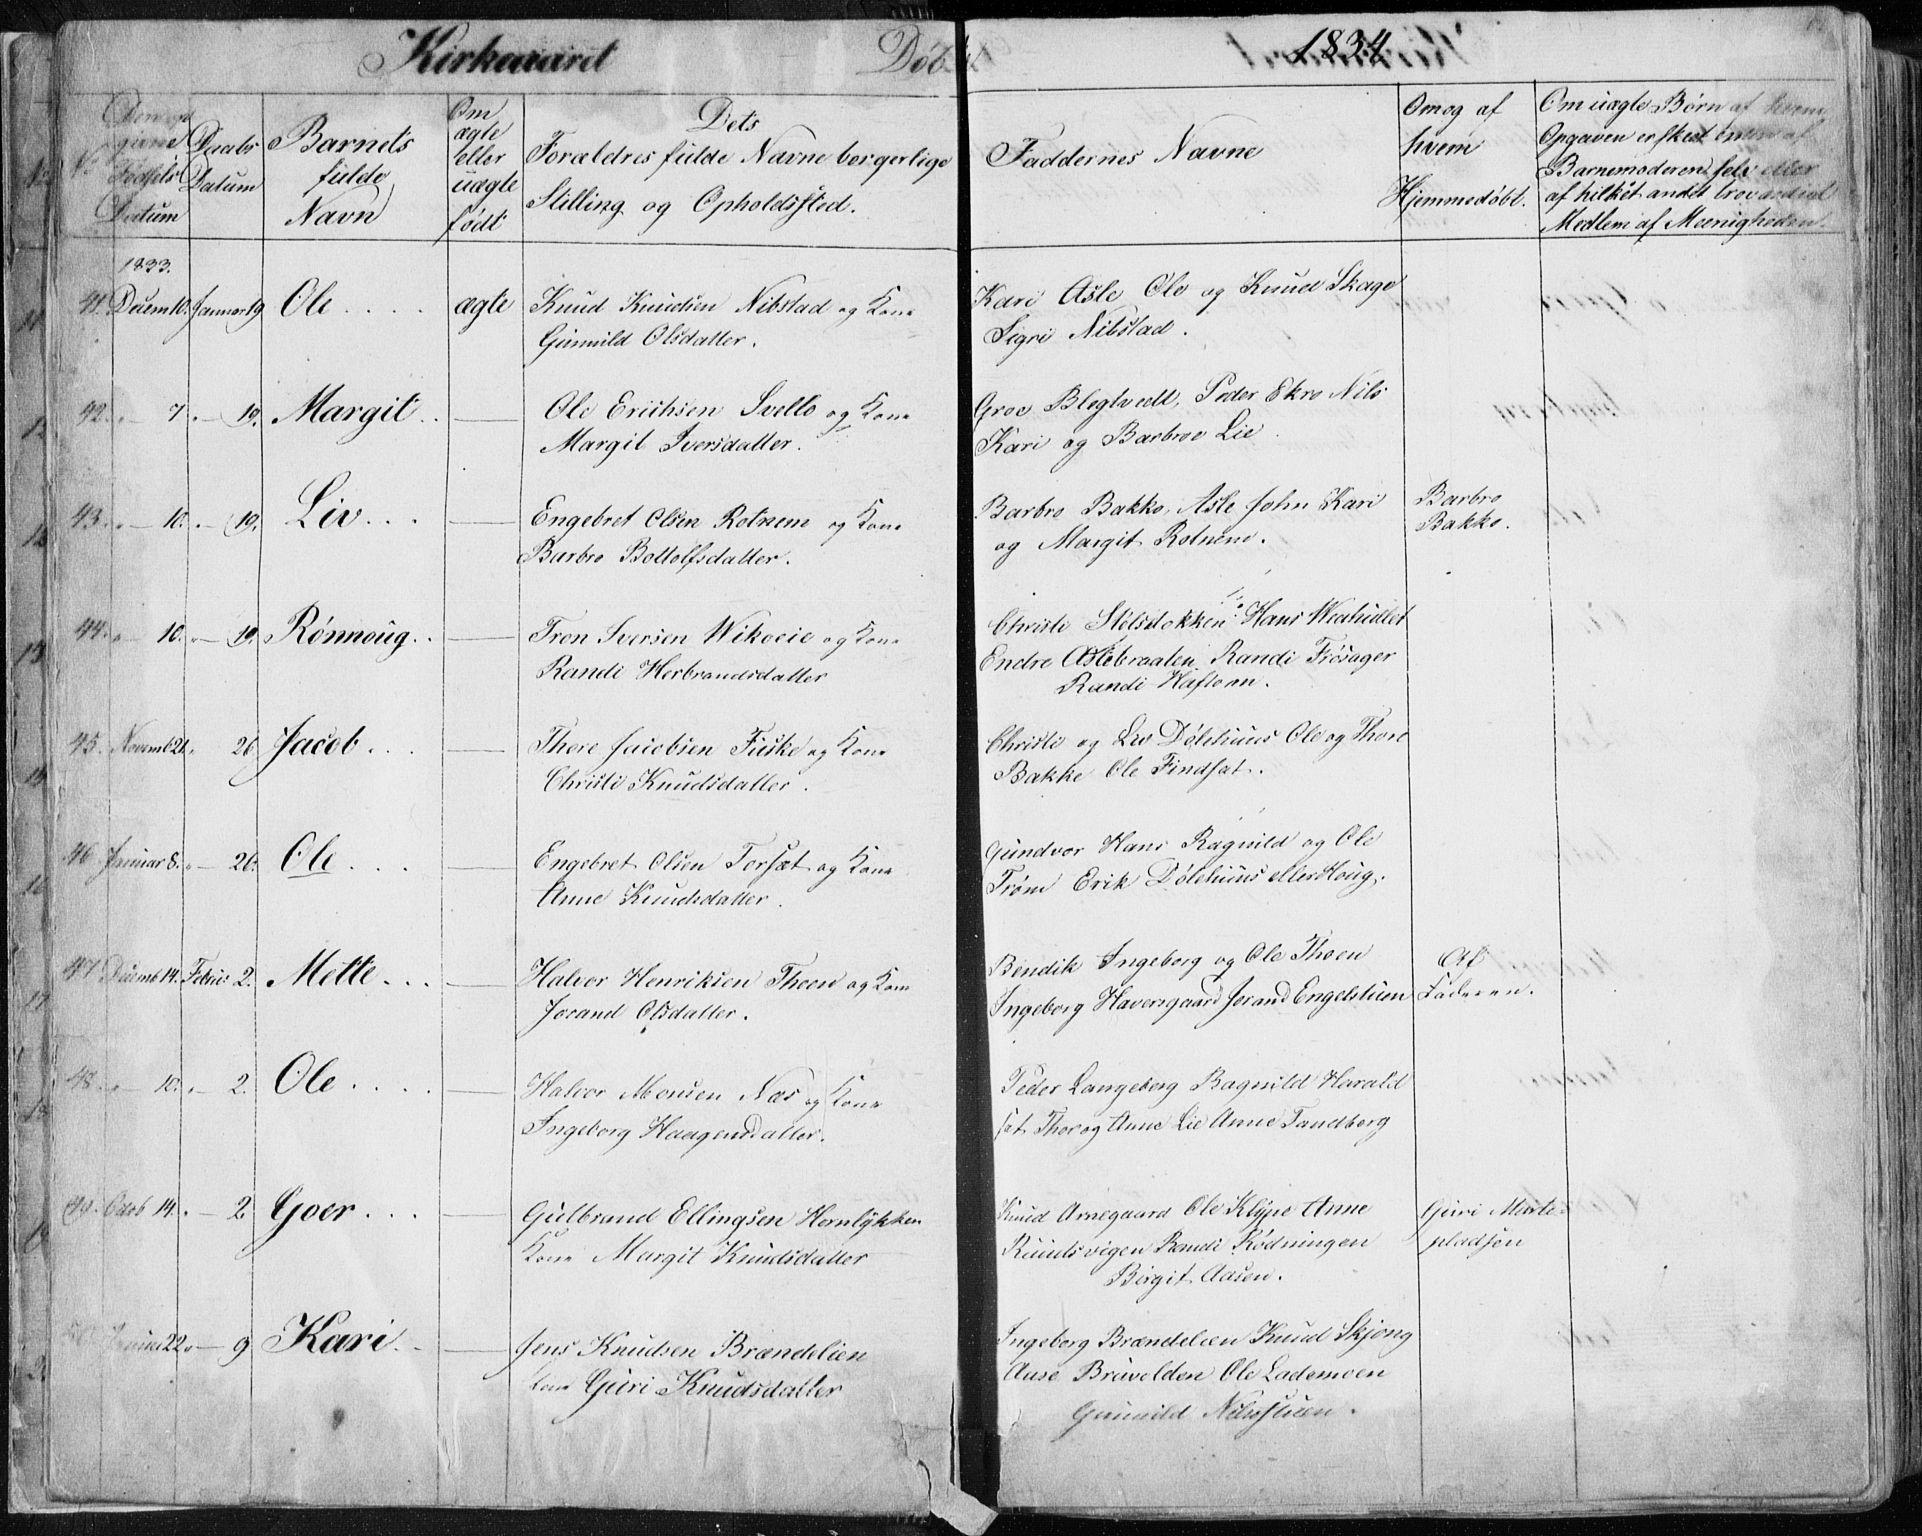 Kirkeaaret Døb 1834
No Den op
givne
Fødsels
Datum
Daabs
Datum
Barnets
fulde
Navn
Om
ægte
eller
uægte
født
Dets
Forældres fulde Navne borgerlige
Stilling og Opholdssted.
Faddernes Navne
Om og af
hvem
Hjemmedøbt.
Om uægte Børn af hvem
Opgaven er skeet enten af
Barnemoderen selv eller
af hilket andet troværdigt
Medlem af Mænigheden.
1833.
41. Decem 10. Januar 19 Ole . . . . ægte Knud Knudsen Nibstad og Kone
Gunnild Olsdatter.
Kari Asle Ole og Knud Skage
Sigri Nibstad.
42. " — 7 " — 19. Margit . . — Ole Erichsen Svello og Kone
Margit Iversdatter.
Groe Blegtvedt, Peder Ekro Nils
Kari og Barbroe Lie
43. " — 10. " — 19. Liv . . . — Engebret Olsen Rotnem og Kone
Barbro Bottolfsdatter.
Barbro Bakko, Asle John Kari
og Margit Rotnem.
Barbro
Bakko.
44. " — 10. " — 19. Rønnoug . . — Tron Iversen Wikoeie og Kone
Randi Herbrandsdatter
Christi Stilsdokken Hans Wedhullet
Endre Aslebraaten Randi Frøsager
Randi Hafloan.
45. Novemb 21. " 26 Jacob . . . — Thore Jacobsen Fiske og Kone
Christi Knudsdatter.
Christi og Liv Dølehuus Ole og Thore
Bakke Ole Findsat.
46 Januar 8. " — 26. Ole . . . — Engebret Olsen Torsæt og Kone
Anne Knudsdatter.
Gundvor Hans Ragnild og Ole
Trøm Erik Dølehuus eller Houg.
47 Decemb 14. Februr 2. Mette . . . — Halvor Henriksen Thoen og Kone
Jorand Olsdatter.
Bendik Ingeborg og Ole Thoen
Ingeborg Haversgaard Jorand Engelstuen
Af
Faderen.
48. " — 10. " 2. Ole . . . . — Halvor Monsen Næs og Kone
Ingeborg Haagensdatter.
Peder Langeberg Ragnild Harald
sæt Thor og Anne Lie Anne Tandberg
49. Octob 14. " — 2 Goer . . . — Gulbrand Ellingsen Hernlykken
Kone Margit Knudsdatter
Knud Arnegaard Ole Klype Anne
Ruudsvigen Randi Rødningen
Birgit Aasen.
Guri Morte
pladsen
50 Januar 22 " — 9 Kari . . — Jens Knudsen Brændelien
Kone Guri Knudsdatter
Ingeborg Brændelien Knud Skjong
Anse Bravolden Ole Lademoen
Gunnild Nilsstuen.